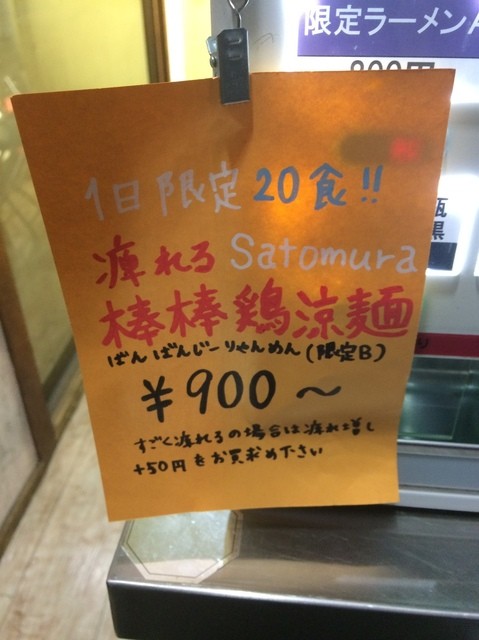 限定ラーメンA
800円
1日限定20食!!
痺れるSatomura
棒棒鶏涼麺
ばんばんじーりゃんめん(限定B)
¥900〜
すごく痺れるの場合は痺れ増し
+50円をお買求め下さい